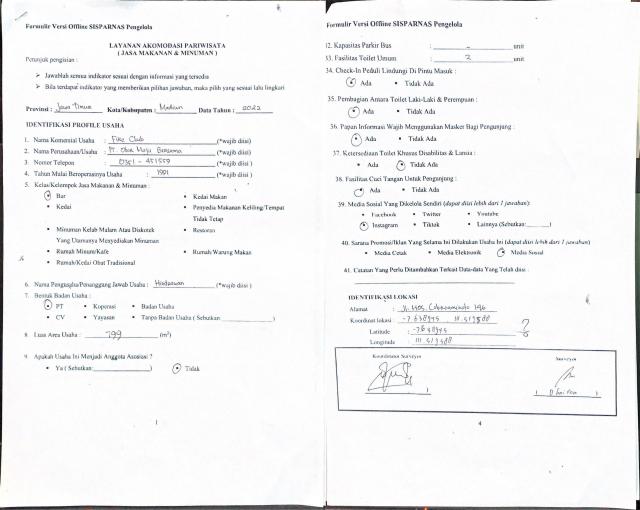 Formulir Versi Offline SISPARNAS Pengelola
LAYANAN AKOMODASI PARIWISATA
( JASA MAKANAN & MINUMAN )
Petunjuk pengisian :
➤ Jawablah semua indikator sesuai dengan informasi yang tersedia
➤ Bila terdapat indikator yang memberikan pilihan jawaban, maka pilih yang sesuai lalu lingkari
Provinsi : Jawa Timur Kota/Kabupaten : Madiun Data Tahun : 2022
IDENTIFIKASI PROFILE USAHA
1. Nama Komersial Usaha : Fire Club (*wajib diisi)
2. Nama Perusahaan/Usaha : PT. Bersama (*wajib diisi)
3. Nomor Telepon : 0351 - 451559 (*wajib diisi )
4. Tahun Mulai Beroperasinya Usaha : 1991 (*wajib diisi )
5. Kelas/Kelompok Jasa Makanan & Minuman :
Bar
• Kedai Makan
• Kedai
• Penyedia Makanan Keliling/Tempat
Tidak Tetap
• Minuman Kelab Malam Atau Diskotek
Yang Utamanya Menyediakan Minuman
• Restoran
• Rumah Minum/Kafe
• Rumah/Warung Makan
• Rumah/Kedai Obat Tradisional
6. Nama Pengusaha/Penanggung Jawab Usaha : (*wajib diisi )
7. Bentuk Badan Usaha :
PT • Koperasi • Badan Usaha
• CV • Yayasan • Tanpa Badan Usaha ( Sebutkan: )
8. Luas Area Usaha : 799 (m²)
9. Apakah Usaha Ini Menjadi Anggota Asosiasi ?
• Ya ( Sebutkan: ) Tidak
1
Formulir Versi Offline SISPARNAS Pengelola
32. Kapasitas Parkir Bus : - unit
33. Fasilitas Toilet Umum : 2 unit
34. Check-In Peduli Lindungi Di Pintu Masuk :
Ada • Tidak Ada
35. Pembagian Antara Toilet Laki-Laki & Perempuan :
Ada • Tidak Ada
36. Papan Informasi Wajib Menggunakan Masker Bagi Pengunjung :
Ada • Tidak Ada
37. Ketersediaan Toilet Khusus Disabilitas & Lansia :
• Ada Tidak Ada
38. Fasilitas Cuci Tangan Untuk Pengunjung :
Ada • Tidak Ada
39. Media Sosial Yang Dikelola Sendiri (dapat diisi lebih dari 1 jawaban):
• Facebook • Twitter • Youtube
Instagram • Tiktok • Lainnya (Sebutkan: )
40. Sarana Promosi/Iklan Yang Selama Ini Dilakukan Usaha Ini (dapat diisi lebih dari 1 jawaban)
• Media Cetak • Media Elektronik Media Sosial
41. Catatan Yang Perlu Ditambahkan Terkait Data-data Yang Telah diisi :
IDENTIFIKASI LOKASI
Alamat : Jl. HOS Cokroaminoto
Koordinat lokasi :
Latitude :
Longitude :
?
Koordinator Surveyor
Surveyor
4